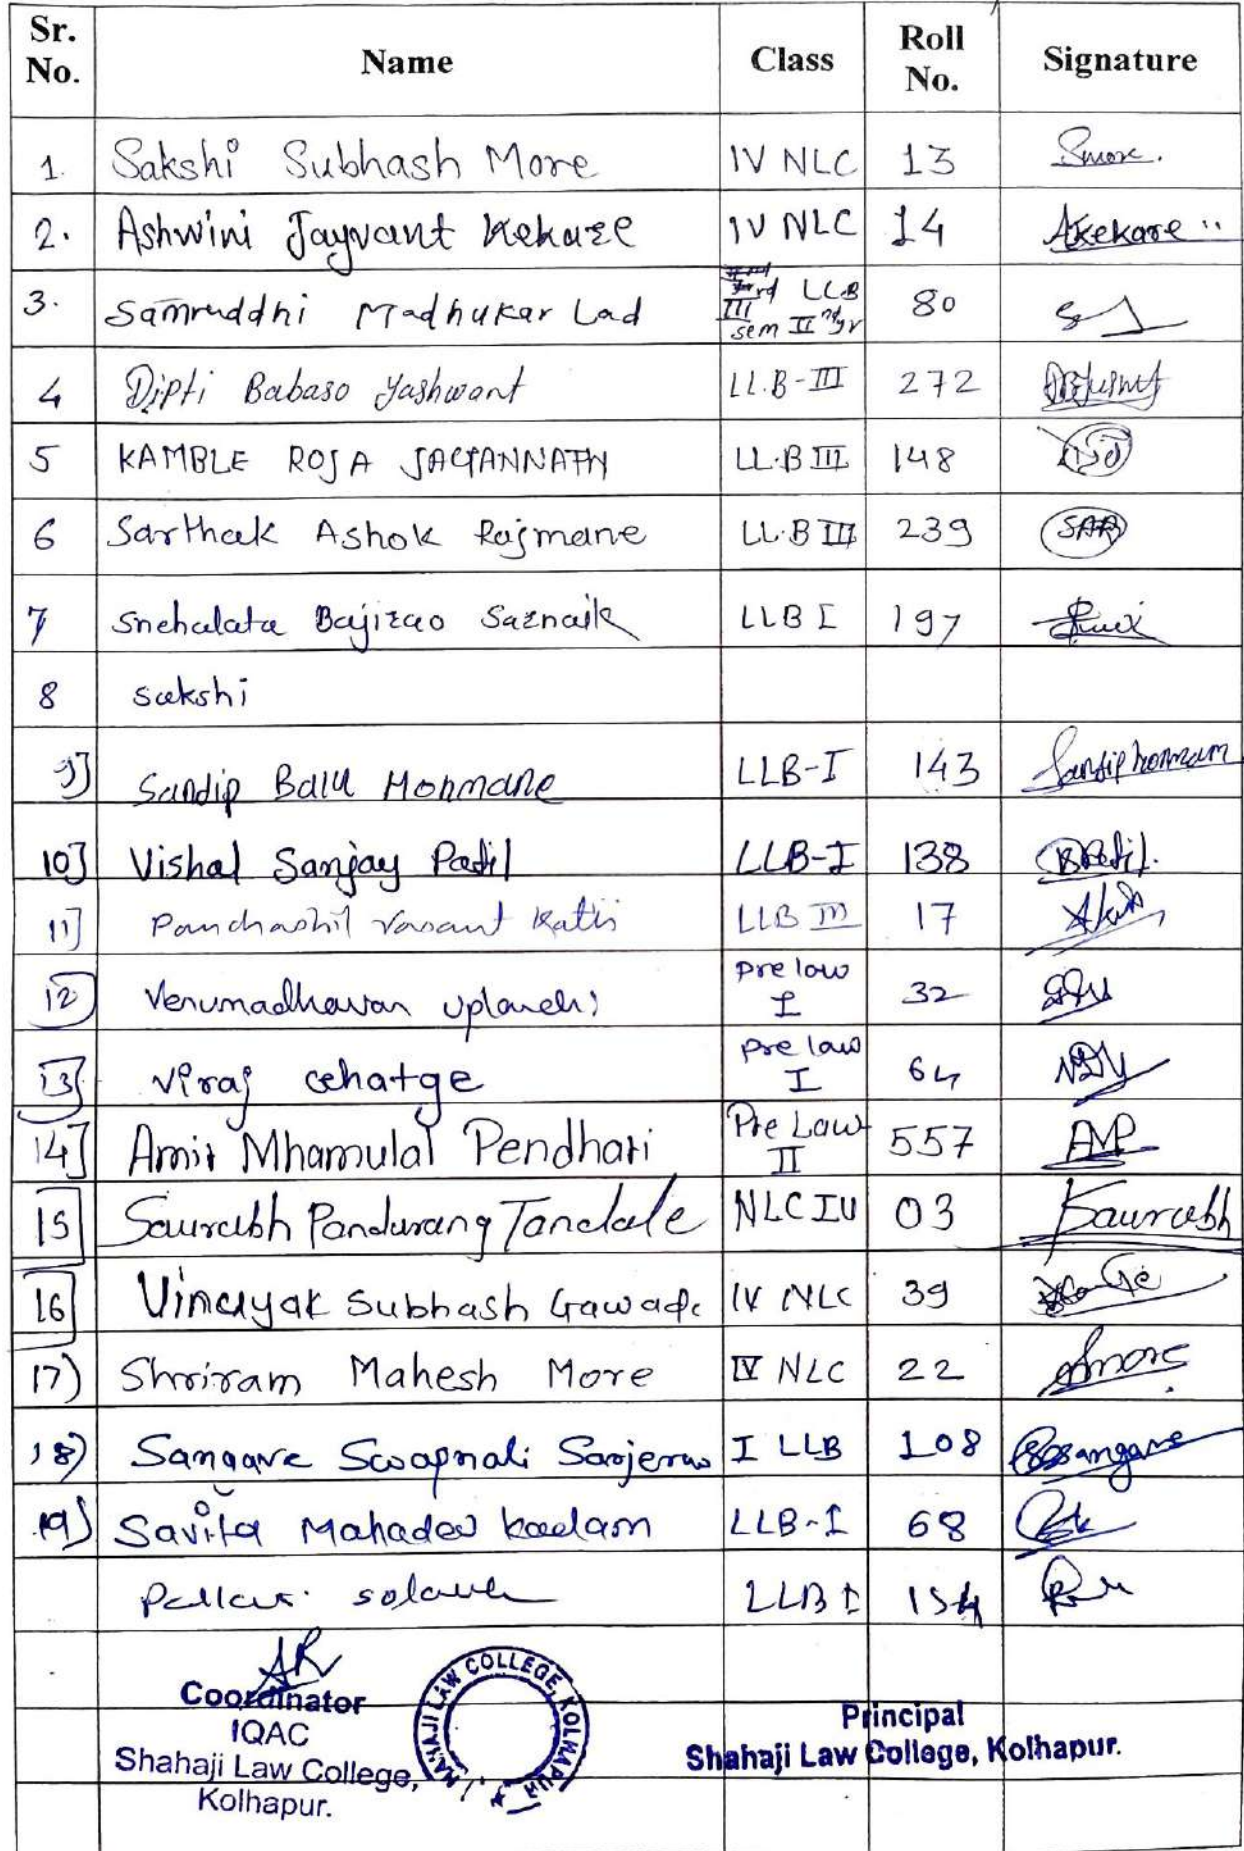 Sr. No. Name Class Roll No. Signature
1. Sakshi Subhash More IV NLC 13 Smore.
2. Ashwini Jayvant Kekare IV NLC 14 AKekare
3. Samruddhi Madhukar Lad LLB III sem IInd yr 80
4 Dipti Babaso Yashwant LL.B-III 272
5 KAMBLE ROJA JAGANNATH LL.B III 148
6 Sarthak Ashok Rajmane LL.B III 239 SAR
7 Snehalata Bajirao Sarnaik LLB I 197
8 sakshi
9] Sandip Balu Honmane LLB-I 143 Sandiphonmane
10] Vishal Sanjay Patil LLB-I 138 Patil.
11] Panchashil Vasant Katti LLB III 17
12 Venumadhavan Uplanchi Pre law I 32
13] Viraj Ghatge Pre law I 64
14] Amit Mhamulal Pendhari Pre Law II 557 AMP
15 Saurabh Pandurang Tandale NLC IV 03 Saurabh
16 Vinayak Subhash Gawade IV NLC 39
17) Shriram Mahesh More IV NLC 22 Smore
18) Sangave Swapnali Sarjerao I LLB 108 Sangave
19) Savita Mahadev Kadam LLB-I 68
Pallavi LLB I 154
AR
Coordinator
IQAC
Shahaji Law College,
Kolhapur.
SHAHAJI LAW COLLEGE, KOLHAPUR
Principal
Shahaji Law College, Kolhapur.